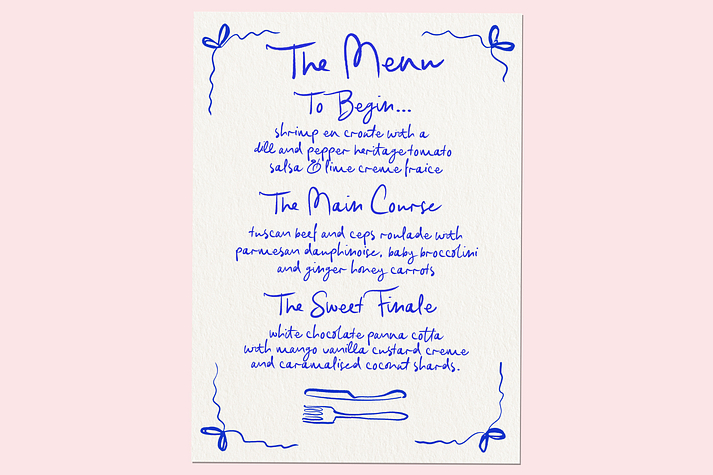 The Menu
To Begin...
shrimp en croute with a
dill and pepper heritage tomato
salsa & lime creme fraice
The Main Course
tuscan beef and ceps roulade with
parmesan dauphinoise, baby broccolini
and ginger honey carrots
The Sweet Finale
white chocolate panna cotta
with mango vanilla custard creme
and caramalised coconut shards.